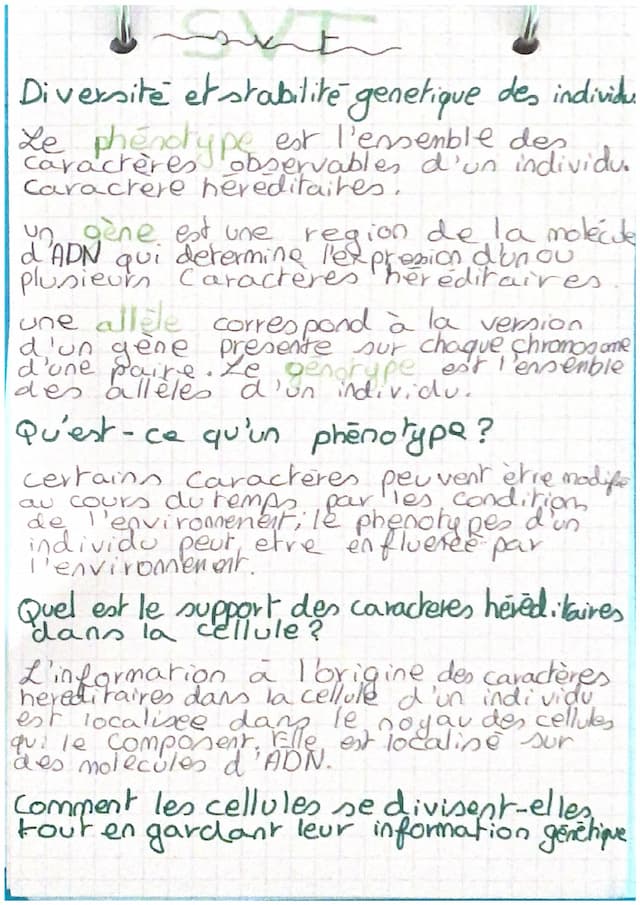 SVT
svt
Diversité et stabilité genetique des individu
Le phénotype est l'ensemble des
caractères observables d'un individu.
caractere héréditaires.
un gène est une region de la molécule
d'ADN qui determine l'expression d'un ou
plusieurs caractères héréditaires.
une allèle correspond à la version
d'un gène présente sur chaque chromosome
d'une paire. Le génotype est l'ensenble
des allèles d'un individu.
Qu'est-ce qu'un phénotype?
certains caractères peuvent être modifié
au cours du temps par les condition
de l'environnement; le phenotypes d'un
individu peut etre enfluereé par
l'environnement.
Quel est le support des caracteres héréditaires
dans la cellule?
L'information à l'origine des caractères
hereditaires dans la cellule d'un individu
est localisee dans le noyau des cellules
qui le composent. Elle est localisé sur
des molécules d'ADN.
Comment les cellules se divisent-elles
tout en gardant leur information génétique